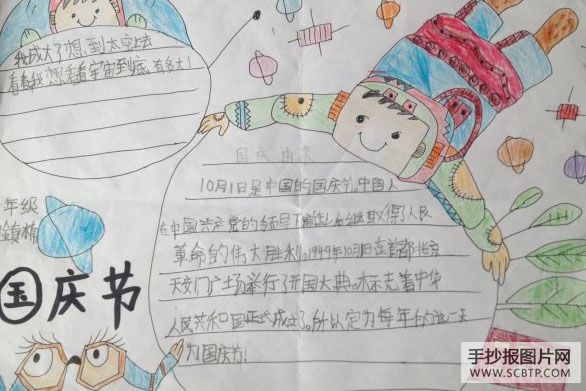 我成大了想到太空上去
看看我想看看宇宙到底有多大!
国庆由来
10月1日是中国的国庆节。中国人
在中国共产党的领导下
取得了人民
革命的伟大胜利。1949年10月1日在首都北京
天安门广场举行了开国大典。标志着中华
人民共和国正式成立了。所以定为每年的这一天
为国庆节!
年级
国庆节
手抄报图片网
WWW.SCBTP.COM